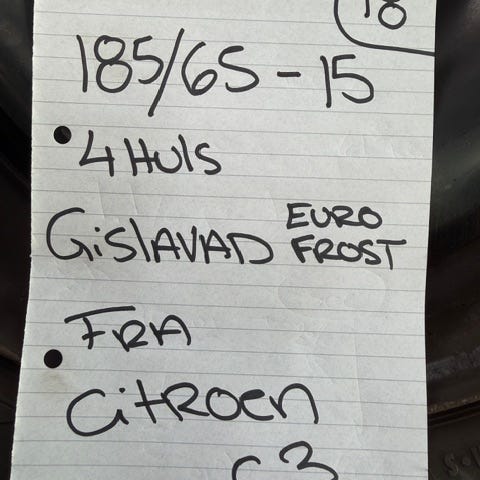 18
185/65-15
4 HULS
GISLAVAD EURO FROST
FRA
CITROEN
C3